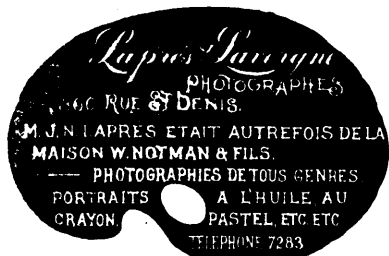 Lapres & Lavergne
PHOTOGRAPHES
RUE ST DENIS.
M. J. N LAPRES ETAIT AUTREFOIS DE LA
MAISON W. NOTMAN & FILS.
PHOTOGRAPHIES DE TOUS GENRES
PORTRAITS A L'HUILE, AU
CRAYON, PASTEL, ETC ETC
TELEPHONE 7283